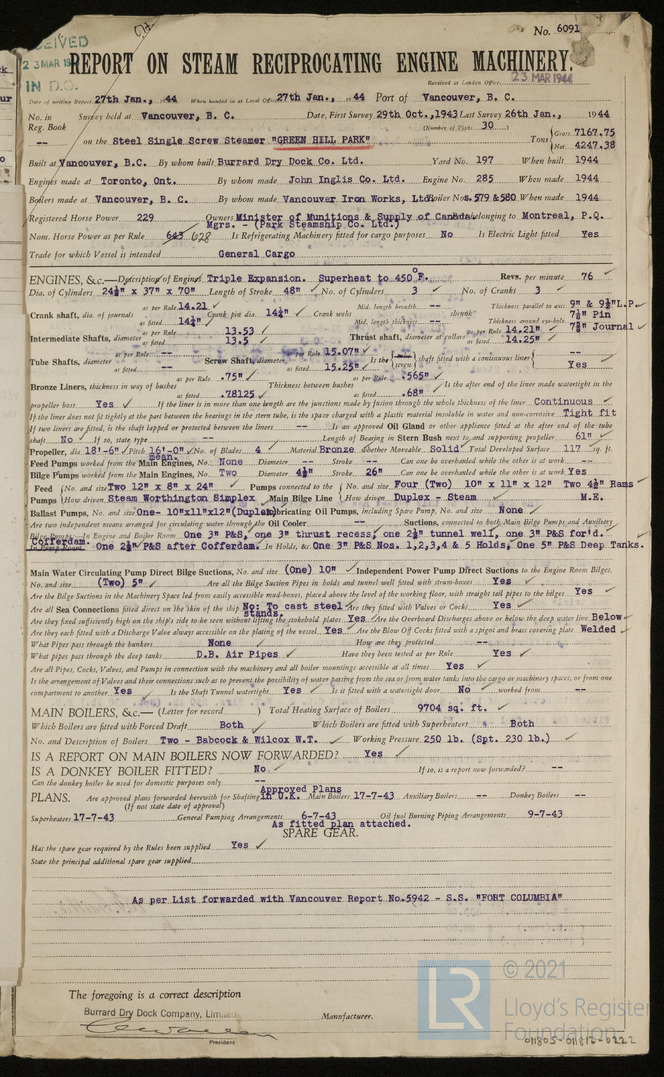 No. 6091
RECEIVED
23 MAR 1944
IN D.O.
REPORT ON STEAM RECIPROCATING ENGINE MACHINERY.
Received at London Office 23 MAR 1944
Date of writing Report 27th Jan., 44 When handed in at Local Office 27th Jan., 1944 Port of Vancouver, B. C.
No. in Survey held at Vancouver, B. C. Date, First Survey 29th Oct., 1943 Last Survey 26th Jan., 1944
Reg. Book (Number of Visits 30)
-- on the Steel Single Screw Steamer "GREEN HILL PARK" Tons Gross 7167.75
Net 4247.38
Built at Vancouver, B.C. By whom built Burrard Dry Dock Co. Ltd. Yard No. 197 When built 1944
Engines made at Toronto, Ont. By whom made John Inglis Co. Ltd. Engine No. 285 When made 1944
Boilers made at Vancouver, B. C. By whom made Vancouver Iron Works, Ltd. Boiler Nos. 579 & 580 When made 1944
Registered Horse Power 229 Owners Minister of Munitions & Supply of Canada Port belonging to Montreal, P.Q.
Mgrs. - (Park Steamship Co. Ltd.)
Nom. Horse Power as per Rule 643 628 Is Refrigerating Machinery fitted for cargo purposes No Is Electric Light fitted Yes
Trade for which Vessel is intended General Cargo
ENGINES, &c.—Description of Engines Triple Expansion. Superheat to 450°F. Revs. per minute 76
Dia. of Cylinders 24½" x 37" x 70" Length of Stroke 48" No. of Cylinders 3 No. of Cranks 3
Crank shaft, dia. of journals as per Rule 14.21 as fitted 14¼" Crank pin dia. 14¼" Crank webs Mid. length breadth -- Mid. length thickness -- shrunk Thickness parallel to axis 9" & 9¼" L.P. Thickness around eye-hole 7⅛" Pin
7⅜" Journal
Intermediate Shafts, diameter as per Rule 13.53 as fitted 13.5 Thrust shaft, diameter at collars as per Rule 14.21" as fitted 14.25"
Tube Shafts, diameter as per Rule -- as fitted -- Screw Shaft, diameter as per Rule 15.07" as fitted 15.25" Is the screw shaft fitted with a continuous liner -- Yes
Bronze Liners, thickness in way of bushes as per Rule .75" as fitted .78125 Thickness between bushes as per Rule .565" as fitted .68" Is the after end of the liner made watertight in the
propeller boss Yes If the liner is in more than one length are the junctions made by fusion through the whole thickness of the liner Continuous
If the liner does not fit tightly at the part between the bearings in the stern tube, is the space charged with a plastic material insoluble in water and non-corrosive Tight fit
If two liners are fitted, is the shaft lapped or protected between the liners -- Is an approved Oil Gland or other appliance fitted at the after end of the tube
shaft No If so, state type -- Length of Bearing in Stern Bush next to and supporting propeller 61"
Propeller, dia 18'-6" Pitch 16'-0" mean. No. of Blades 4 Material Bronze whether Moveable Solid Total Developed Surface 117 sq. ft.
Feed Pumps worked from the Main Engines, No. None Diameter -- Stroke -- Can one be overhauled while the other is at work --
Bilge Pumps worked from the Main Engines, No. Two Diameter 4½" Stroke 26" Can one be overhauled while the other is at work Yes
Feed Pumps No. and size Two 12" x 8" x 24" Pumps connected to the Main Bilge Line No. and size Four (Two) 10" x 11" x 12" Two 4½" Rams
How driven Steam Worthington Simplex How driven Duplex - Steam M.E.
Ballast Pumps, No. and size One- 10"x11"x12" (Duplex) Lubricating Oil Pumps, including Spare Pump, No. and size None
Are two independent means arranged for circulating water through the Oil Cooler -- Suctions, connected to both Main Bilge Pumps and Auxiliary
Bilge Pumps—In Engine and Boiler Room One 3" P&S, one 3" thrust recess, one 2½" tunnel well, one 3" P&S for'd.
Cofferdam. One 2½" P&S after Cofferdam. In Holds, &c. One 3" P&S Nos. 1,2,3,4 & 5 Holds, One 5" P&S Deep Tanks.
Main Water Circulating Pump Direct Bilge Suctions, No. and size (One) 10" Independent Power Pump Direct Suctions to the Engine Room Bilges,
No. and size (Two) 5" Are all the Bilge Suction Pipes in holds and tunnel well fitted with strum-boxes Yes
Are the Bilge Suctions in the Machinery Space led from easily accessible mud-boxes, placed above the level of the working floor, with straight tail pipes to the bilges Yes
Are all Sea Connections fitted direct on the skin of the ship No: To cast steel stands. Are they fitted with Valves or Cocks Yes
Are they fixed sufficiently high on the ship's side to be seen without lifting the stokehold plates Yes Are the Overboard Discharges above or below the deep water line Below
Are they each fitted with a Discharge Valve always accessible on the plating of the vessel Yes Are the Blow Off Cocks fitted with a spigot and brass covering plate Welded
What Pipes pass through the bunkers None How are they protected --
What pipes pass through the deep tanks D.B. Air Pipes Have they been tested as per Rule Yes
Are all Pipes, Cocks, Valves, and Pumps in connection with the machinery and all boiler mountings accessible at all times Yes
Is the arrangement of Valves and their connections such as to prevent the possibility of water passing from the sea or from water tanks into the cargo or machinery spaces, or from one
compartment to another Yes Is the Shaft Tunnel watertight Yes Is it fitted with a watertight door No worked from --
MAIN BOILERS, &c.—(Letter for record ) Total Heating Surface of Boilers 9704 sq. ft.
Which Boilers are fitted with Forced Draft Both Which Boilers are fitted with Superheaters Both
No. and Description of Boilers Two - Babcock & Wilcox W.T. Working Pressure 250 lb. (Spt. 230 lb.)
IS A REPORT ON MAIN BOILERS NOW FORWARDED? Yes
IS A DONKEY BOILER FITTED? No. If so, is a report now forwarded? --
Can the donkey boiler be used for domestic purposes only --
PLANS. Are approved plans forwarded herewith for Shafting Approved Plans in U.K. Main Boilers 17-7-43 Auxiliary Boilers -- Donkey Boilers --
(If not state date of approval)
Superheaters 17-7-43 General Pumping Arrangements 6-7-43 Oil fuel Burning Piping Arrangements 9-7-43
As fitted plan attached.
SPARE GEAR.
Has the spare gear required by the Rules been supplied Yes
State the principal additional spare gear supplied
As per List forwarded with Vancouver Report No. 5942 - S.S. "FORT COLUMBIA"
The foregoing is a correct description
Burrard Dry Dock Company, Limited
Manufacturer.
President
LR © 2021
Lloyd's Register
Foundation
011805-011816-0222